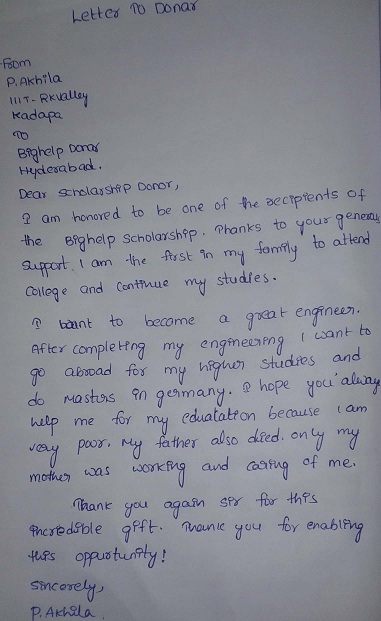 Letter To Donar
From
P. Akhila
IIIT- RKvalley
Kadapa
To
Bighelp Donar
Hyderabad.
Dear Scholarship Donor,
I am honored to be one of the recipients of
the Bighelp Scholarship. Thanks to your generous
Support. I am the first in my family to attend
College and continue my studies.
I want to become a great engineer.
After completing my engineering I want to
go abroad for my higher studies and
do masturs in germany. I hope you alway
help me for my eduatation because I am
very poor. My father also died. only my
mother was working and caring of me.
Thank you again sir for this
incredible gift. Thank you for enabling
this oppurtunity!
Sincerely,
P. Akhila.